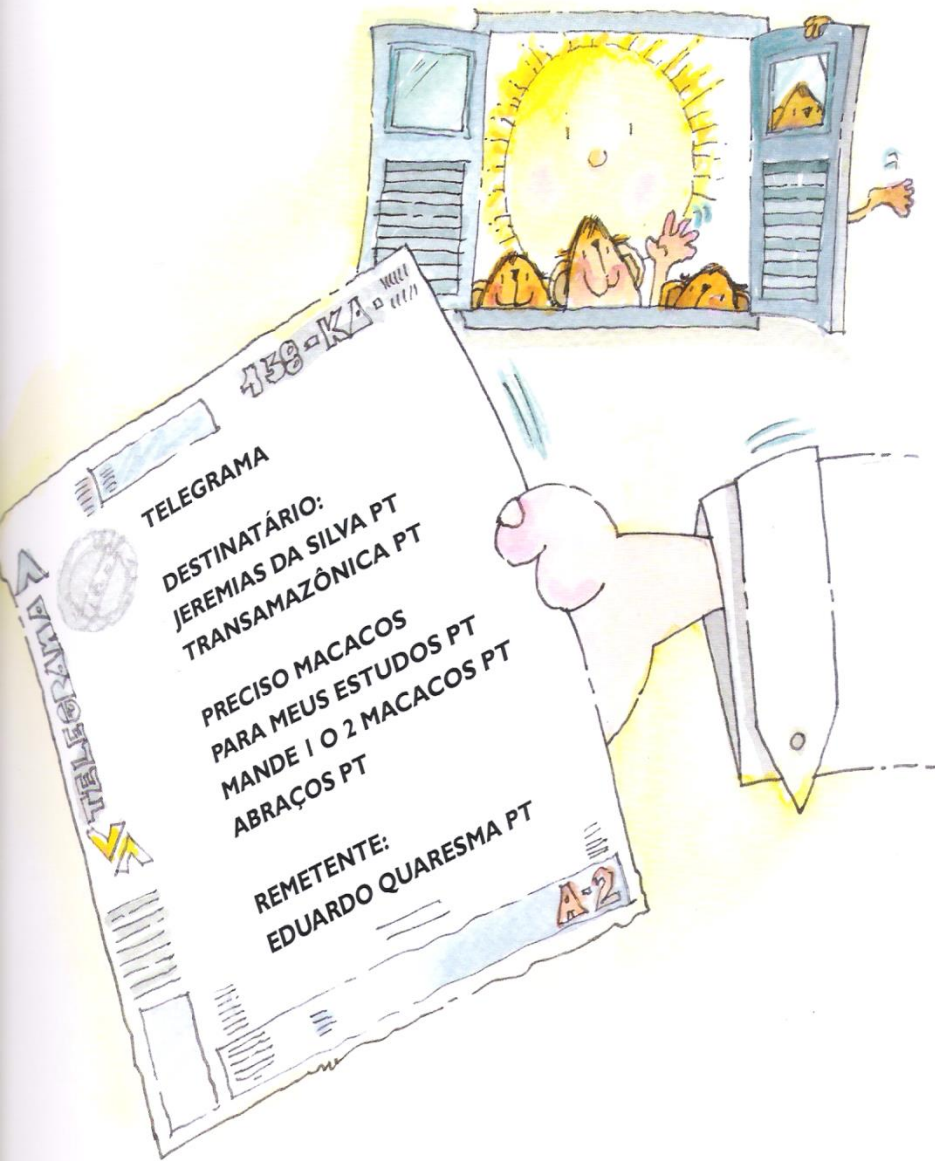 158-KA-
TELEGRAMA
DESTINATÁRIO:
JEREMIAS DA SILVA PT
TRANSAMAZÔNICA PT
PRECISO MACACOS
PARA MEUS ESTUDOS PT
MANDE 1 O 2 MACACOS PT
ABRAÇOS PT
REMETENTE:
EDUARDO QUARESMA PT
A-2
TELEGRAMA